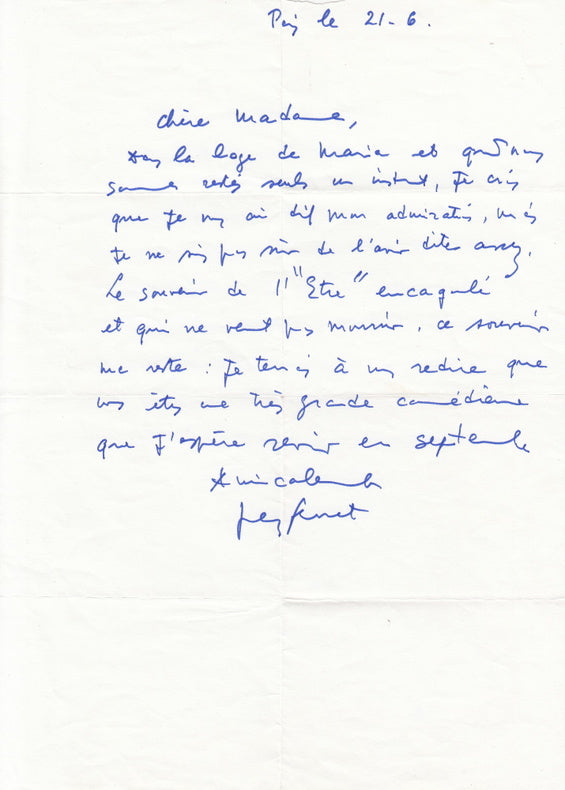 Paris le 21-6.
Chère Madame,
Dans la loge de Maria et quand nous
sommes restés seuls un instant, je crois
que je vous ai dit mon admiration, mais
je ne suis pas sûr de l'avoir dite assez.
Le souvenir de l'"Etre" encagoulé
et qui ne veut pas mourir, ce souvenir
me reste : je tenais à vous redire que
vous êtes une très grande comédienne
que j'espère revoir en septembre
Amicalement
Jean Genet